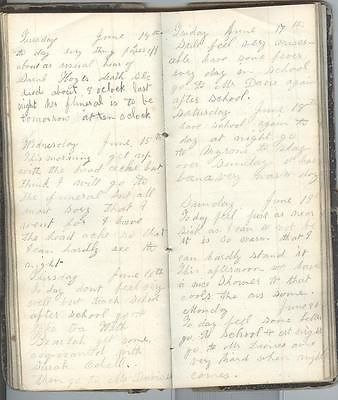 Tuesday June 14th
to day every thing passes off
about as usual hear of
Sarah Hoyts death she
died about 8 oclock last
night her funeral is to be
tomorrow at ten oclock
Wednesday June 15th
This morning get up
with the head ache but
think I will go to
the funeral but all
most sory that I
went for I have
the head ache so that
I can hardly see to
night
Thursday June 16th
To day dont feel very
well but teach school
after school go &
take tea with
get some
acquainted with
Sarah
then go to Mr Davis
Friday June 17th
Still feel very miser
able have some fever
every day in school
go to Mr Davis again
after school.
Saturday June 18th
have school again to
day at night go
to to stay
over Sunday it has
been a very warm day
Sunday June 19
To day feel just as near
sick as I can & not
it is so warm that I
can hardly stand it
This afternoon we have
a nice shower & that
cools the air some.
Monday June 20
To day feel some better
go to school & at night
go to Mr Davis
very hard when night
comes.